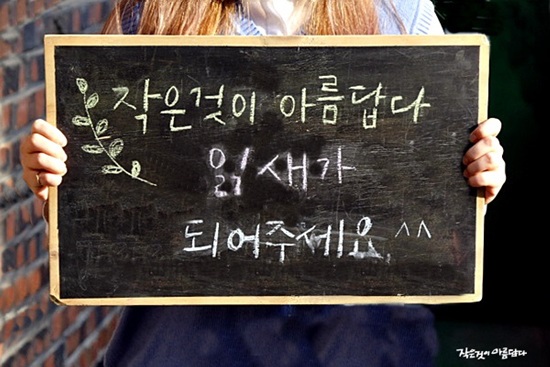 작은것이 아름답다
잎새가
되어주세요 ^^
작은것이 아름답다